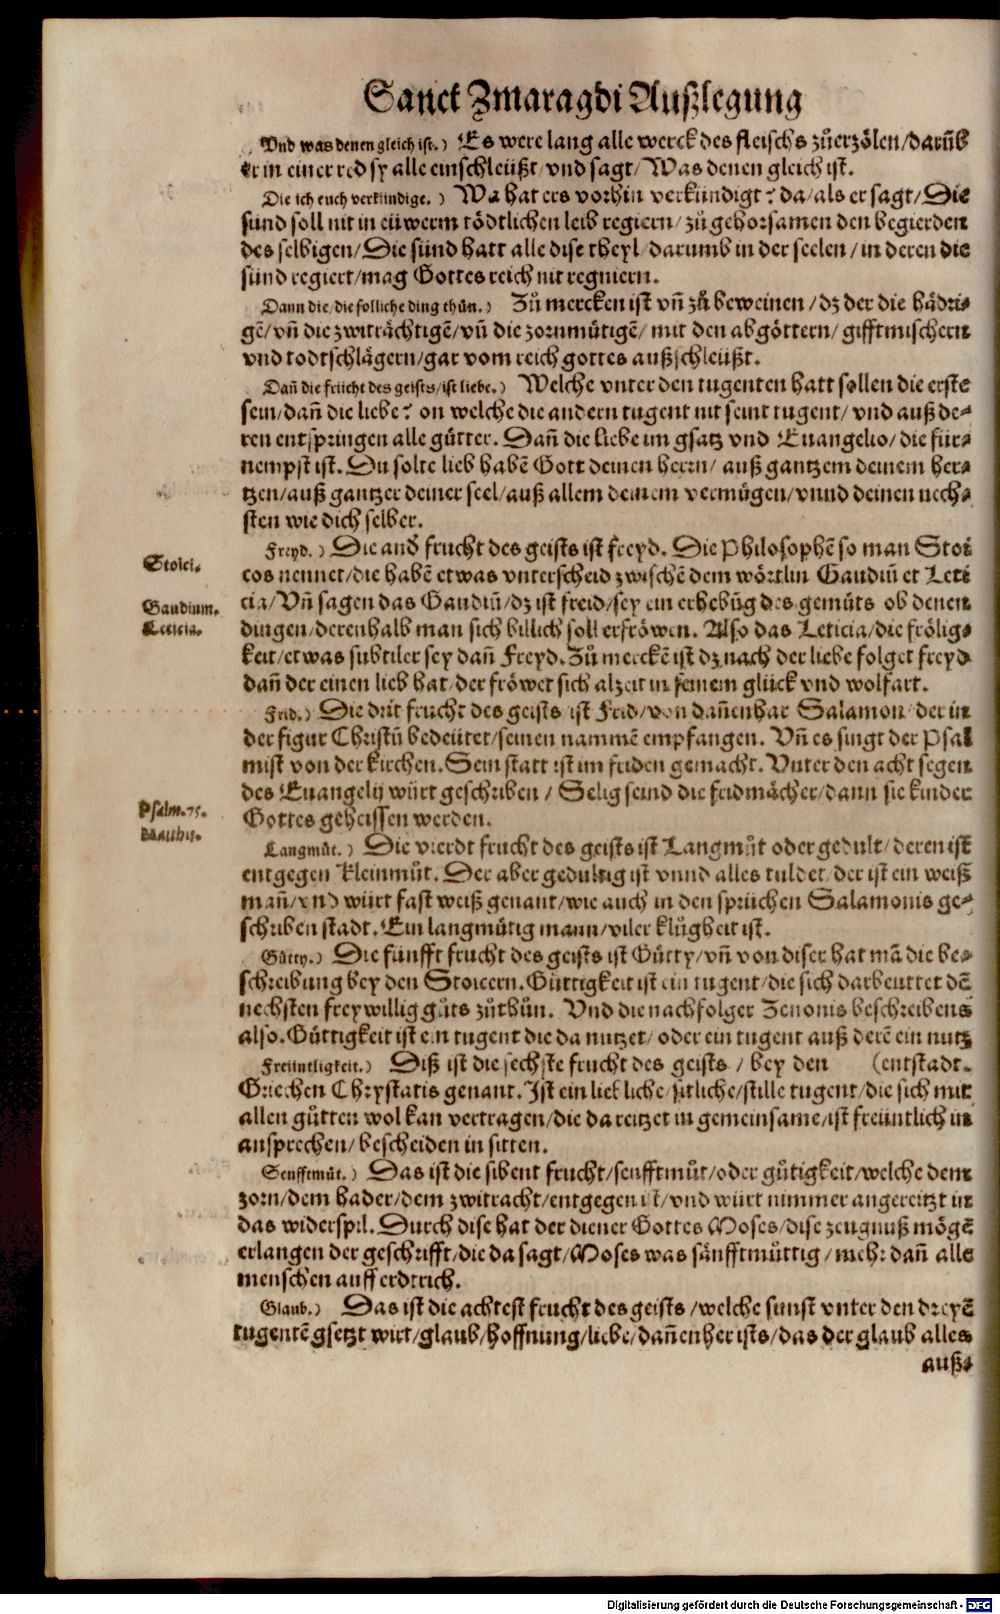 Sanct Zmaragdi Außlegung
Vnd was denen gleich ist.) Es were lang alle werck des fleischs zůerzölen/darum̃b
er in einer red sy alle einschleüßt/vnd sagt/Was denen gleich ist.
Die ich euch verkündige.) Wa hat ers vorhin verkündigt? da/als er sagt/Die
sünd soll nit in eüwerm tödtlichen leib regiern/zů gehorsamen den begierden
des selbigen/Die sünd hatt alle dise theyl/darumb in der seelen/in deren die
sünd regiert/mag Gottes reich nit regniern.
Dann die/die solliche ding thůn.) Zů mercken ist vñ zů beweinen/dz der die hädri⸗
gẽ/vñ die zwiträchtigẽ/vñ die zornmütigẽ/mit den abgöttern/gifftmischern
vnd todtschlägern/gar vom reich gottes außschleüßt.
Dañ die frücht des geists/ist liebe.) Welche vnter den tugenten hatt sollen die erste
sein/dañ die liebe? on welche die andern tugent nit seint tugent/vnd auß de⸗
ren entspringen alle gůtter. Dañ die liebe im gsatz vnd Euangelio/die für⸗
nempst ist. Du solte lieb habẽ Gott deinen herrn/auß gantzem deinem her⸗
tzen/auß gantzer deiner seel/auß allem deinem vermügen/vnnd deinen nech⸗
sten wie dich selber.
Freyd.) Die and̃ frucht des geists ist freyd. Die Philosophẽ so man Stoi
Stoici.
cos nennet/die habẽ etwas vnterscheid zwischẽ dem wörtlin Gaudiũ et Leti
Gaudium.
cia/Vñ sagen das Gaudiũ/dz ist freid/sey ein erhebũg des gemüts ob denen
Leticia.
dingen/derenhalb man sich billich soll erfröwen. Also das Leticia/die frölig⸗
keit/etwas subtiler sey dañ Freyd. Zů merckẽ ist dz nach der liebe folget freyd
dañ der einen lieb hat/der fröwet sich alzeit in seinem glück vnd wolfart.
Frid.) Die drit frucht des geists ist Frid/von dañenhar Salamon/der in
der figur Christũ bedeütet/seinen nammẽ empfangen. Vñ es singt der Psal
mist von der kirchen. Sein statt ist im friden gemacht. Vnter den acht segen
des Euangelij würt geschriben/Selig seind die fridmächer/dann sie kinder
Psalm.75.
Gottes geheissen werden.
Matth5.
Langmůt.) Die vierdt frucht des geists ist Langmůt oder gedult/deren ist
entgegen kleinmůt. Der aber gedultig ist vnnd alles tuldet/der ist ein weiß
mañ/vnd würt fast weiß genant/wie auch in den sprüchen Salamonis ge⸗
schriben stadt. Ein langmütig mann/viler klůgheit ist.
Gütty.) Die fünfft frucht des geists ist Gütty/vñ von diser hat mã die be⸗
schreibung bey den Stoicern. Güttigkeit ist ein tugent/die sich darbeuttet dẽ
nechsten freywillig gůts zůthůn. Vnd die nachfolger Zenonis beschreibens
also. Güttigkeit ist ein tugent die da nutzet/oder ein tugent auß derẽ ein nutz
Freüntligkeit.) Diß ist die sechste frucht des geists/bey den (entstadt.
Griechen Chrystatis genant. Ist ein liebliche/sitliche/stille tugent/die sich mit
allen gůtten wol kan vertragen/die da reitzet in gemeinsame/ist freüntlich in
ansprechen/bescheiden in sitten.
Senfftmůt.) Das ist die sibent frucht/senfftmůt/oder gütigkeit/welche dem
zorn/dem hader/dem zwitracht/entgegen ist/vnd würt nimmer angereitzt in
das widerspil. Durch dise hat der diener Gottes Moses/dise zeugnuß mögẽ
erlangen der geschrifft/die da sagt/Moses was sänfftmüttig/mehr dañ alle
menschen auff erdtrich.
Glaub.) Das ist die achtest frucht des geists/welche sunst vnter den dreyẽ
tugentẽ gsetzt wirt/glaub/hoffnung/liebe/dañenher ists/das der glaub alles
auß⸗
Digitalisierung gefördert durch die Deutsche Forschungsgemeinschaft - DFG